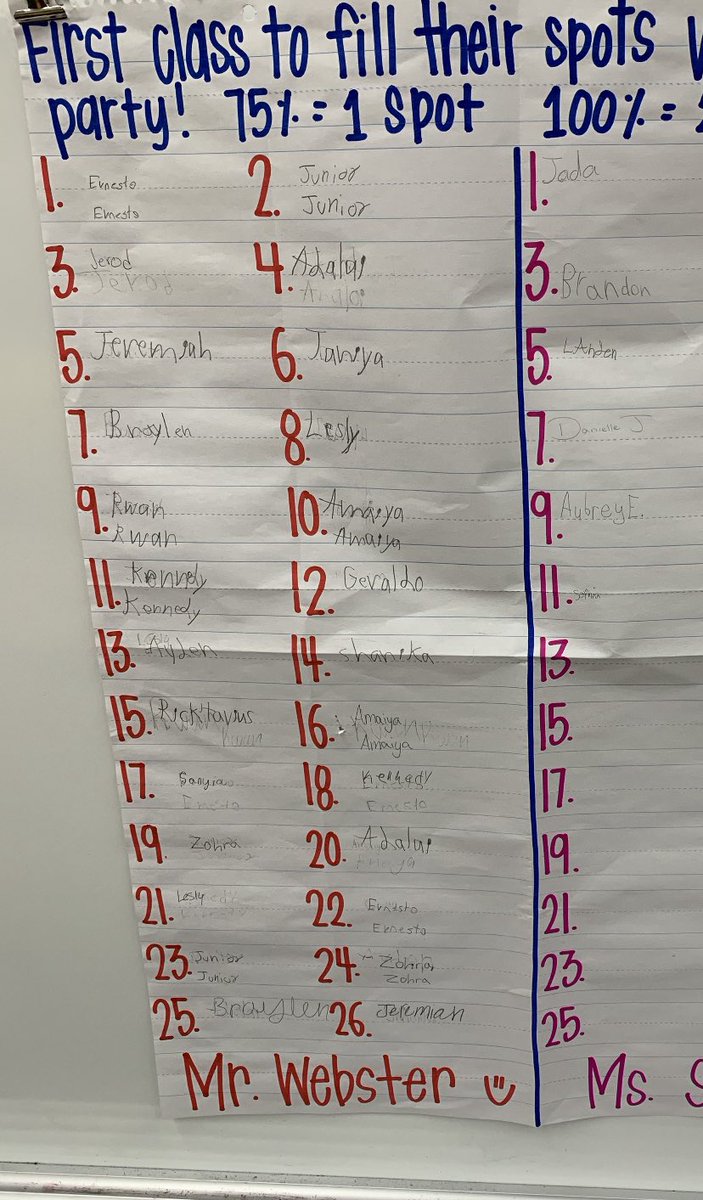 First class to fill their spots
party! 75% = 1 spot 100% =
1. Ernesto 2. Junior 1. Jada
Ernesto Junior
3. Jerod 4. Adalai 3. Brandon
Jerod
5. Jeremiah 6. Janiya 5. LAnden
7. Braylen 8. Lesly 7. Danielle J
9. Rwan 10. Amaiya 9. Aubrey E.
Rwan Amaiya
11. Kennedy 12. Geraldo 11. Sophia
Kennedy
13. Ayden 14. shanika 13.
15. Ricktavus 16. Amaiya 15.
Amaiya
17. Saniya 18. Kennady 17.
Ernesto Ernesto
19. Zohra 20. Adalai 19.
21. Lesly 22. Ernesto 21.
Ernesto
23. Junior 24. Zohra 23.
Junior Zohra
25. Braylen 26. Jeremiah 25.
Mr. Webster Ms.